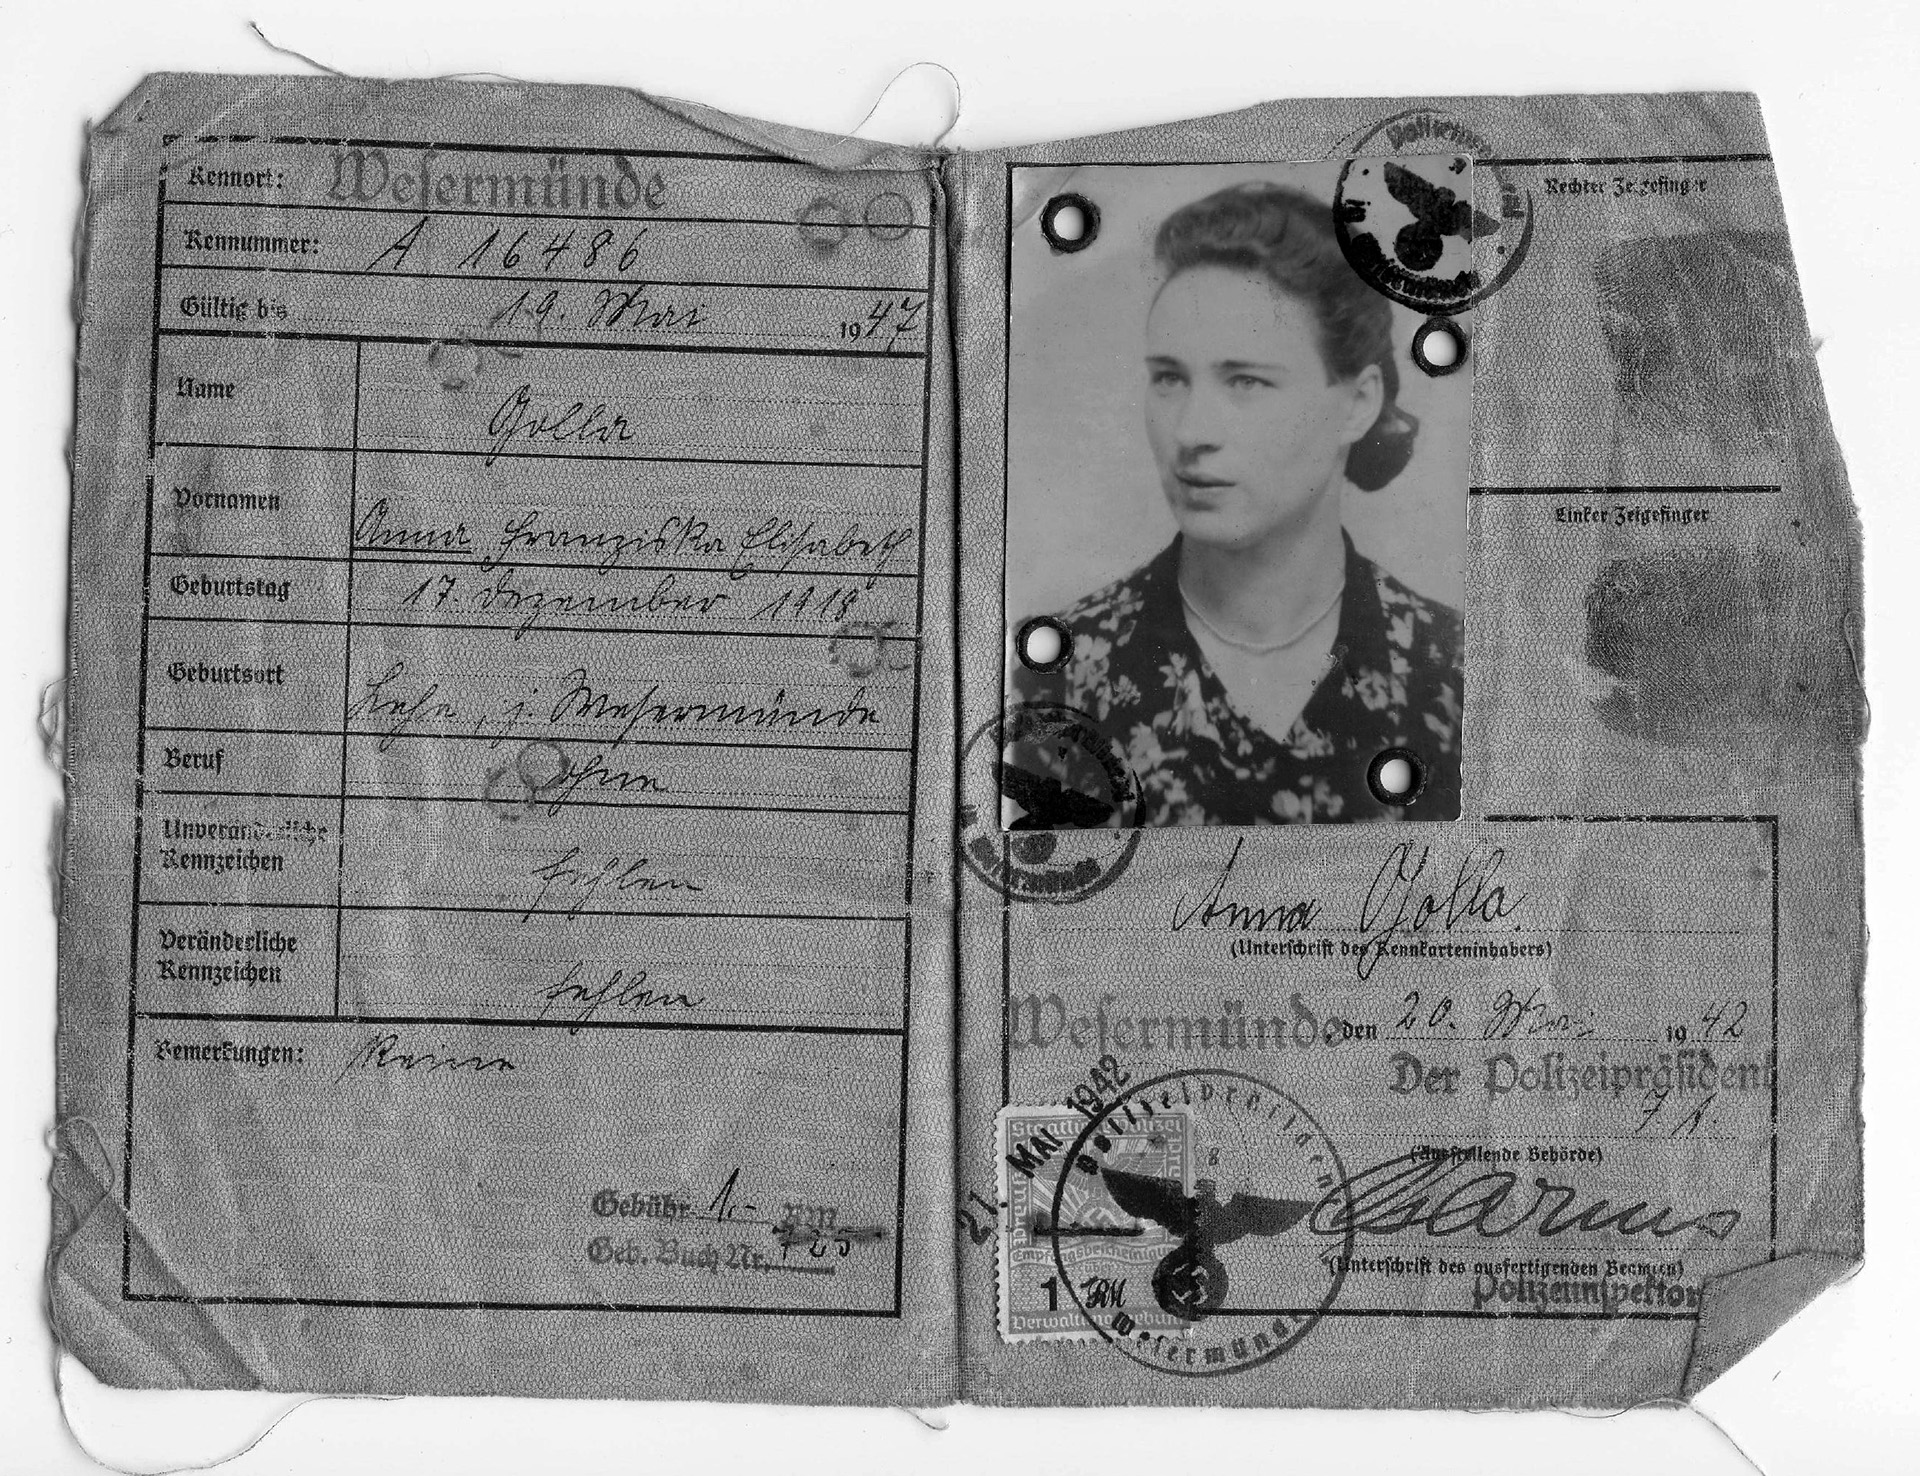 Kennort: Wesermünde
Kennummer: A 16486
Gültig bis 19. Mai 1947
Name Golla
Vornamen Anna Franziska Elisabeth
Geburtstag 17. Dezember 1918
Geburtsort Lehe, j. Wesermünde
Beruf ohne
Unveränderliche
Kennzeichen fehlen
Veränderliche
Kennzeichen fehlen
Bemerkungen: Keine
Gebühr 1.- RM
Geb. Buch Nr. 725
Rechter Zeigefinger
Linker Zeigefinger
Anna Golla.
(Unterschrift des Kennkarteninhabers)
Wesermünde, den 20. Mai 1942
Der Polizeipräsident
(Ausstellende Behörde)
(Unterschrift des ausfertigenden Beamten)
Polizeiinspektor
21. MAI 1942
Polizeipräsident
Wesermünde
1 RM